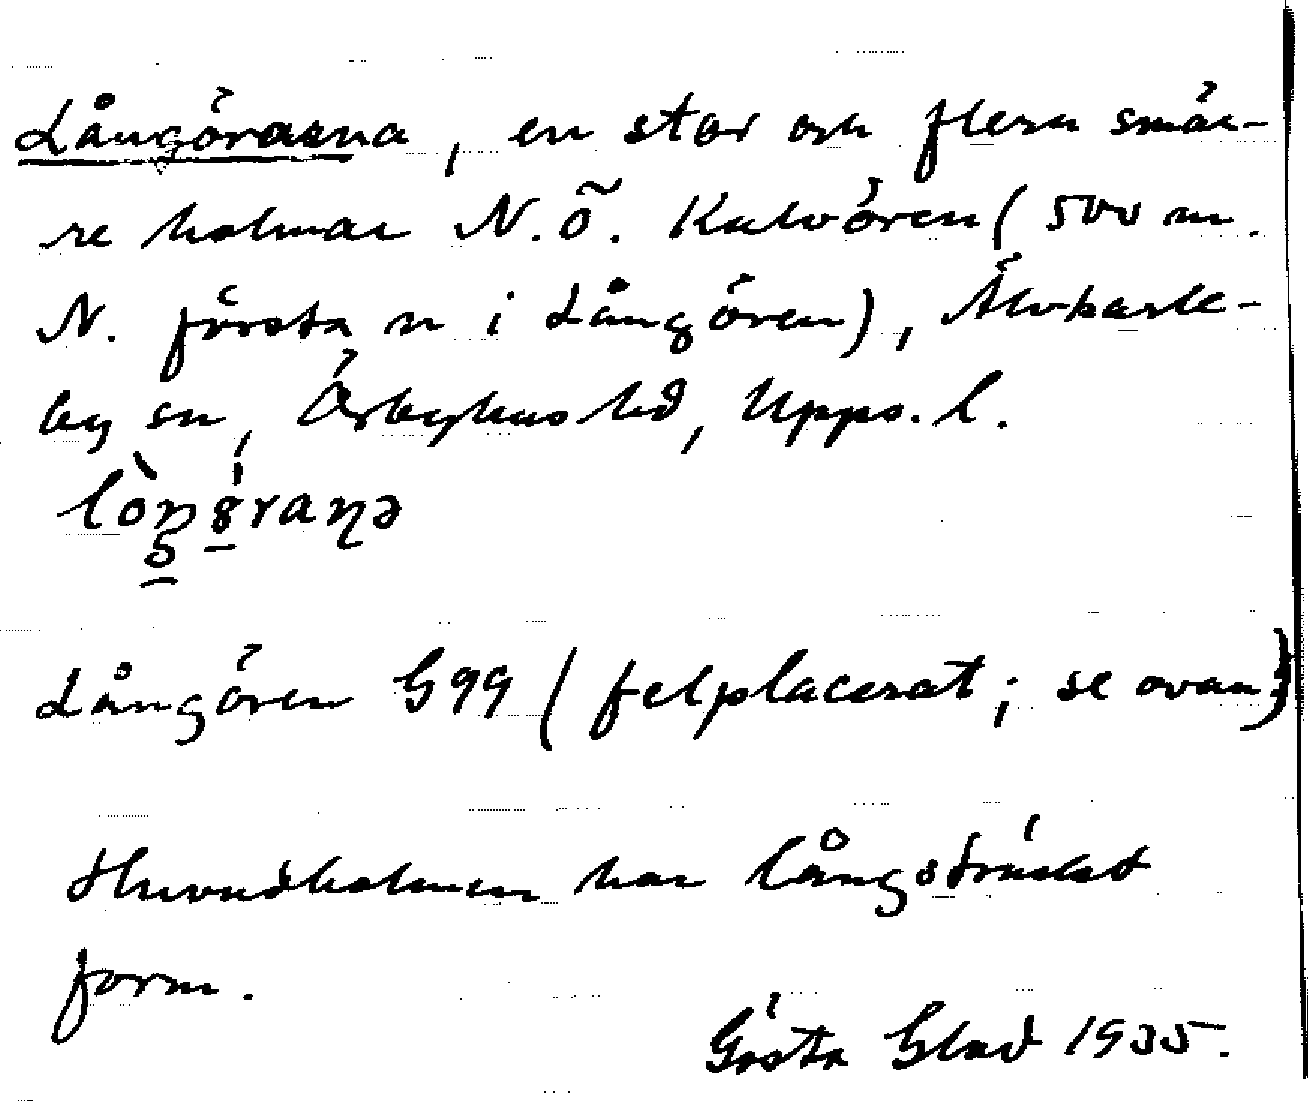 Långörarna, en stor och flera smär-
re holmar N.Ö. Kalvören (500 m.
N. första n i Långören), Älvkarle-
by sn, Örbyhus hd, Upps. l.
Långören G99 (felplacerat; se ovan)
Huvudholmen har långsträckt
form.
Gösta Blad 1935.